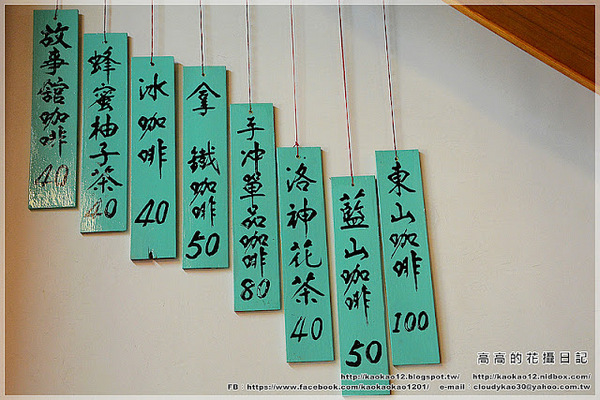 故事館咖啡 40
蜂蜜柚子茶 40
冰咖啡 40
拿鐵咖啡 50
手冲單品咖啡 80
洛神花茶 40
藍山咖啡 50
東山咖啡 100
高高的花攝日記
http://kaokao12.blogspot.tw/ http://kaokao12.nidbox.com/
FB：https://www.facebook.com/kaokaokao1201/ e-mail cloudykao30@yahoo.com.tw